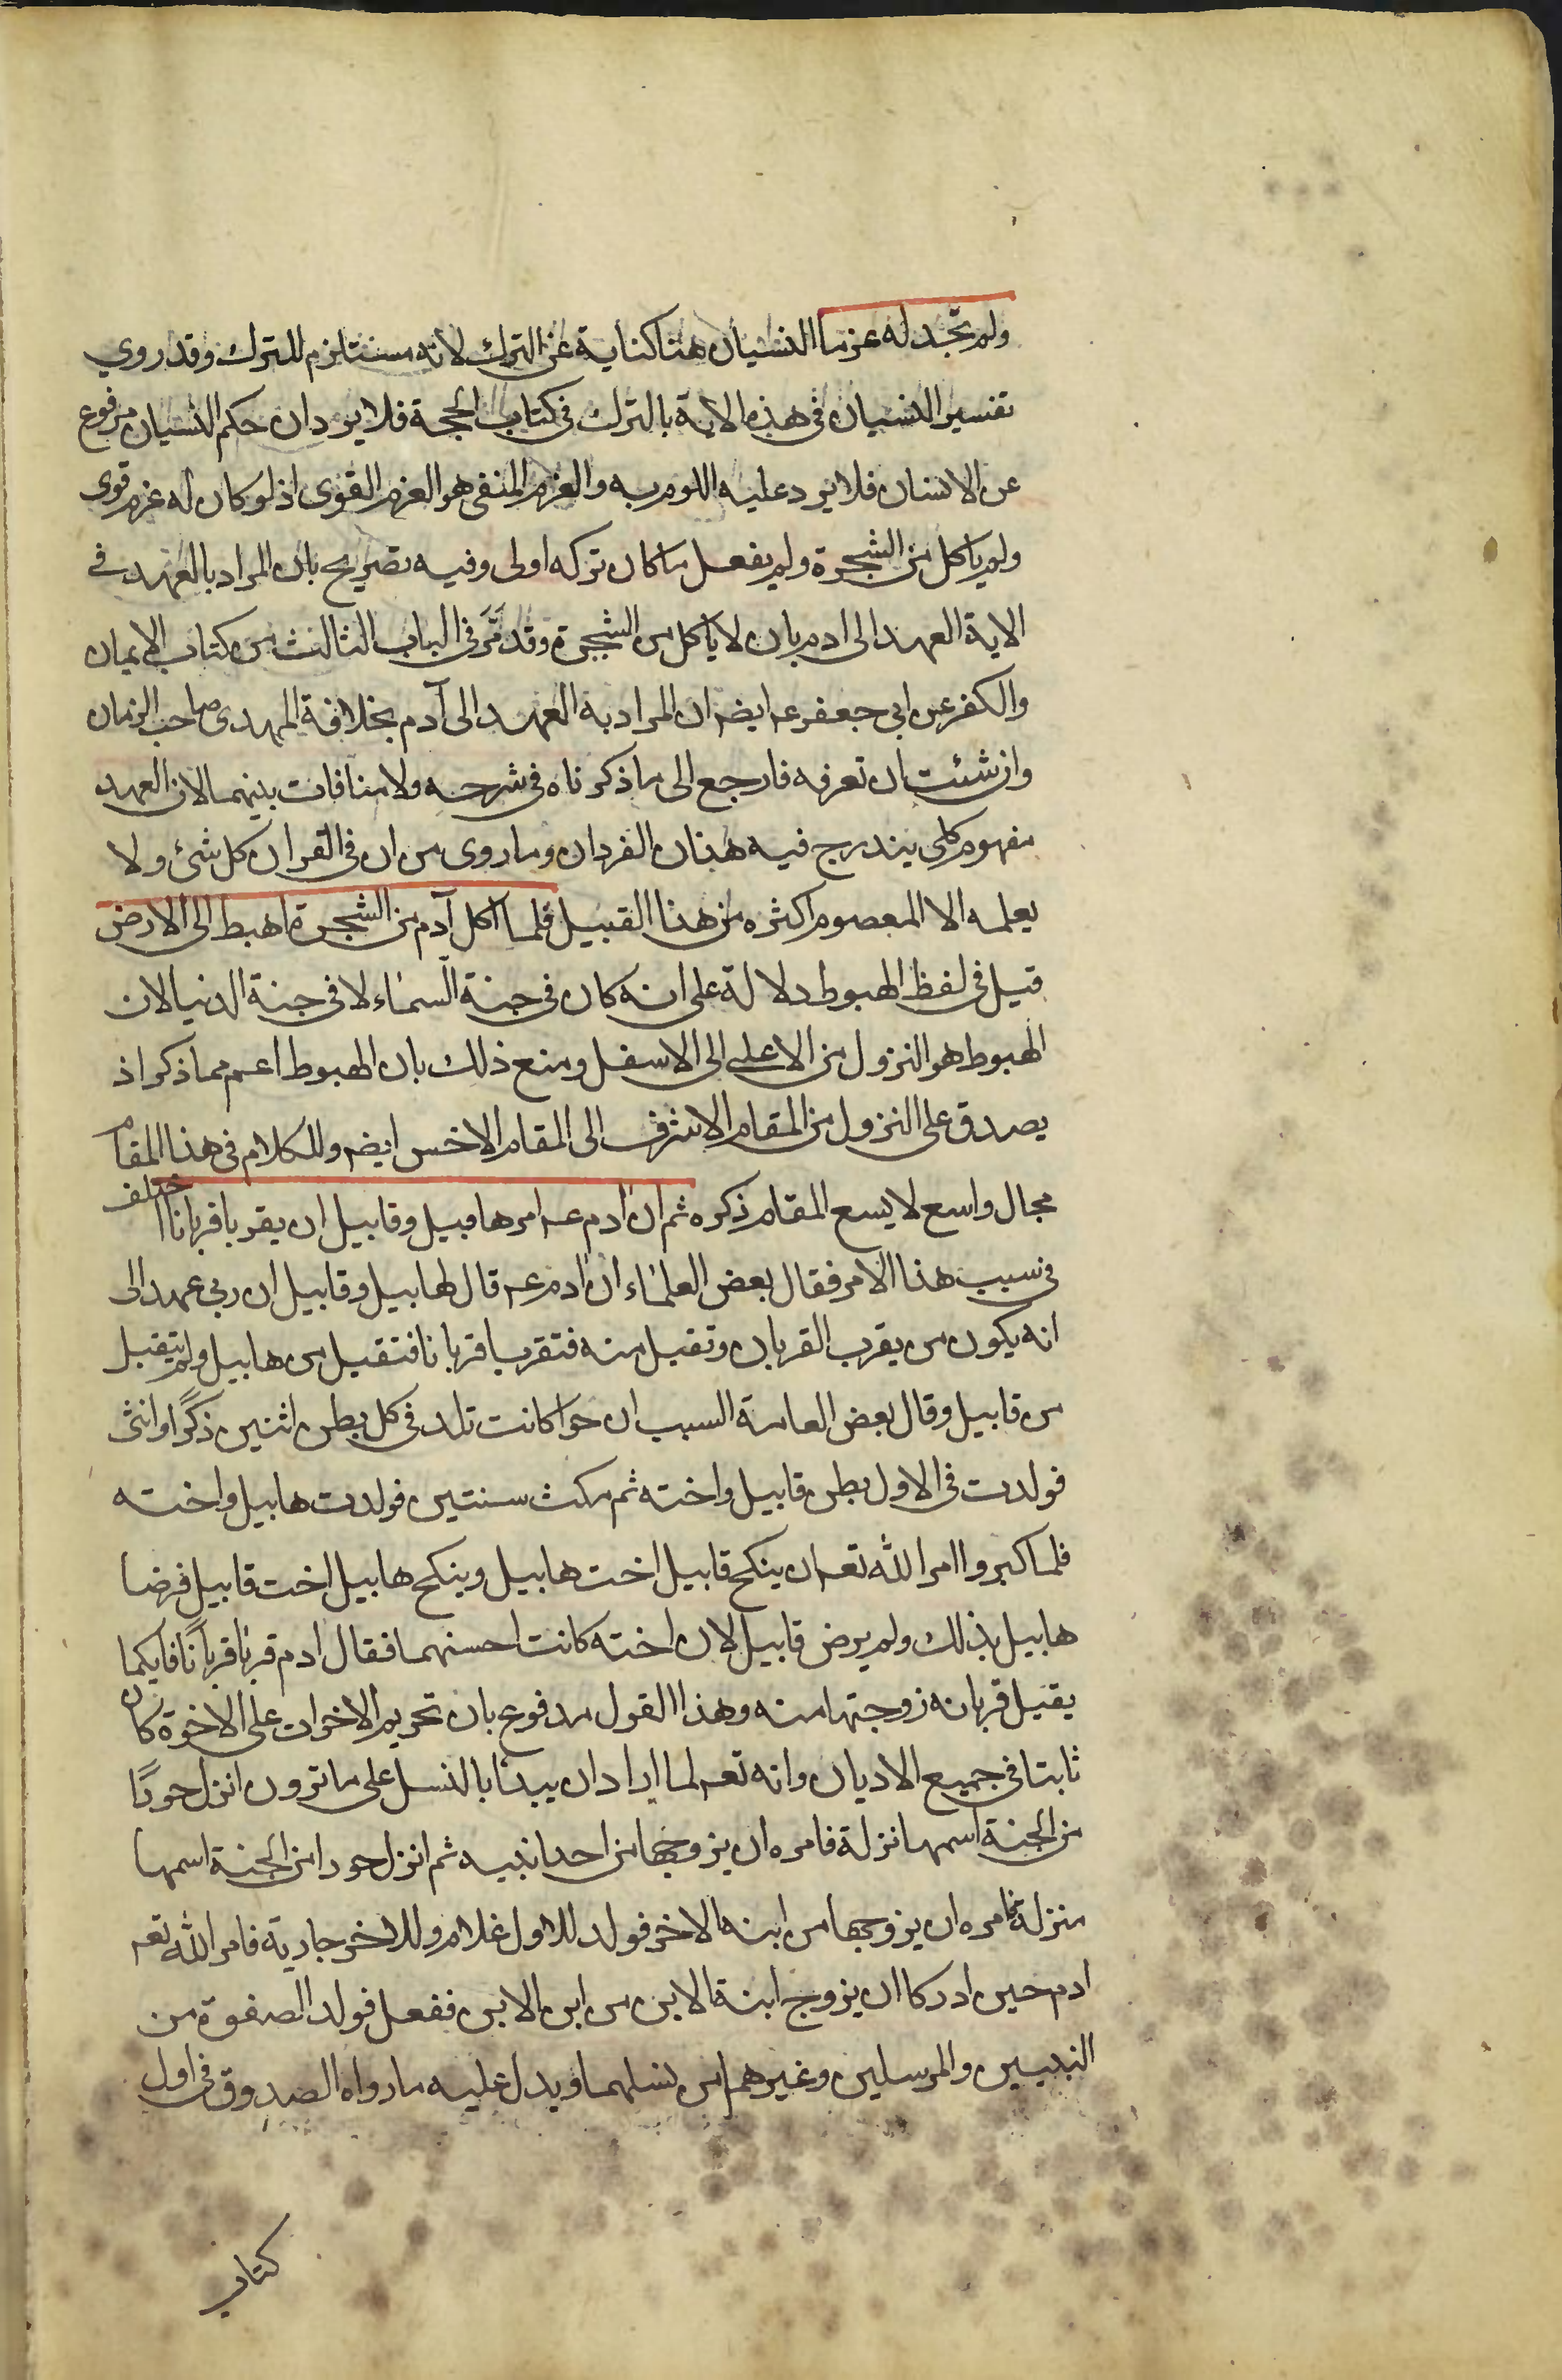 ولم تجد له عزما النسيان هنا كناية عن الترك لانه مستلزم للترك وقد روي
تفسير النسيان في هذه الاية بالترك في كتاب الحجة فلا يرد ان حكم النسيان مرفوع
عن الانسان فلا يرد عليه اللوم به والعزم المنفى هو العزم القوى اذ لو كان له عزم قوى
ولم ياكل من الشجرة ولم يفعل ما كان تركه اولى وفيه تصريح بان المراد بالعهد في
الاية العهد الى ادم بان لا ياكل من الشجرة وقد مَّر في الباب الثالث من كتاب الايمان
والكفر عن ابي جعفر عه ايضه ان المراد به العهد الى آدم بخلافة المهدى صاحب الزمان
وان شئت ان تعرفه فارجع الى ما ذكرناه في شرحه ولا منافات بينهما لان العهد
مفهوم كلي يندرج فيه هذان الفردان وما روى من ان في القران كل شئ ولا
يعلمه الا المعصوم اكثره من هذا القبيل فلما اكل آدم من الشجرة اهبط الى الارض
قيل في لفظ الهبوط دلالة على انه كان في جنة السماء لا في جنة الدنيا لان
الهبوط هو النزول من الاعلى الى الاسفل ومنع ذلك بان الهبوط اعم مما ذكر اذ
يصدق على النزول من المقام الاشرف الى المقام الاخس ايضه وللكلام في هذا المقام
مجال واسع لا يسع المقام ذكره ثم ان ادم عه امر هابيل وقابيل ان يقربا قربانا اختلف
في سبب هذا الامر فقال بعض العلماء ان ادم عه قال لهابيل وقابيل ان ربي عهد الى
انه يكون من يقرب القربان وتقبل منه فتقربا قربانا فتقبل من هابيل ولم يتقبل
من قابيل وقال بعض العامة السبب ان حوا كانت تلد في كل بطن اثنين ذكرًا وانثى
فولدت في الاول بطن قابيل واخته ثم مكث سنتين فولدت هابيل واخته
فلما كبروا امر الله تعه ان ينكح قابيل اخت هابيل وينكح هابيل اخت قابيل فرضا
هابيل بذلك ولم يرض قابيل لان اخته كانت احسنهما فقال ادم قربا قربانًا فايكما
يقبل قربانه زوجتها منه وهذا القول مدفوع بان تحريم الاخوات على الاخوة كان
ثابتا في جميع الاديان وانه تعه لما اراد ان يبدأ بالنسل على ما ترون انزل حورًا
من الجنة اسمها نزلة فامره ان يزوجها من احد ابنيه ثم انزل حورا من الجنة اسمها
منزلة فامره ان يزوجها من ابنه الاخر فولد للاول غلام وللاخر جارية فامر الله تعه
ادم حين ادركا ان يزوج ابنة الابن من ابن الابن ففعل فولد الصفوة من
النبيين والمرسلين وغيرهم من نسلهما ويدل عليه ما رواه الصدوق في اول
كتاب